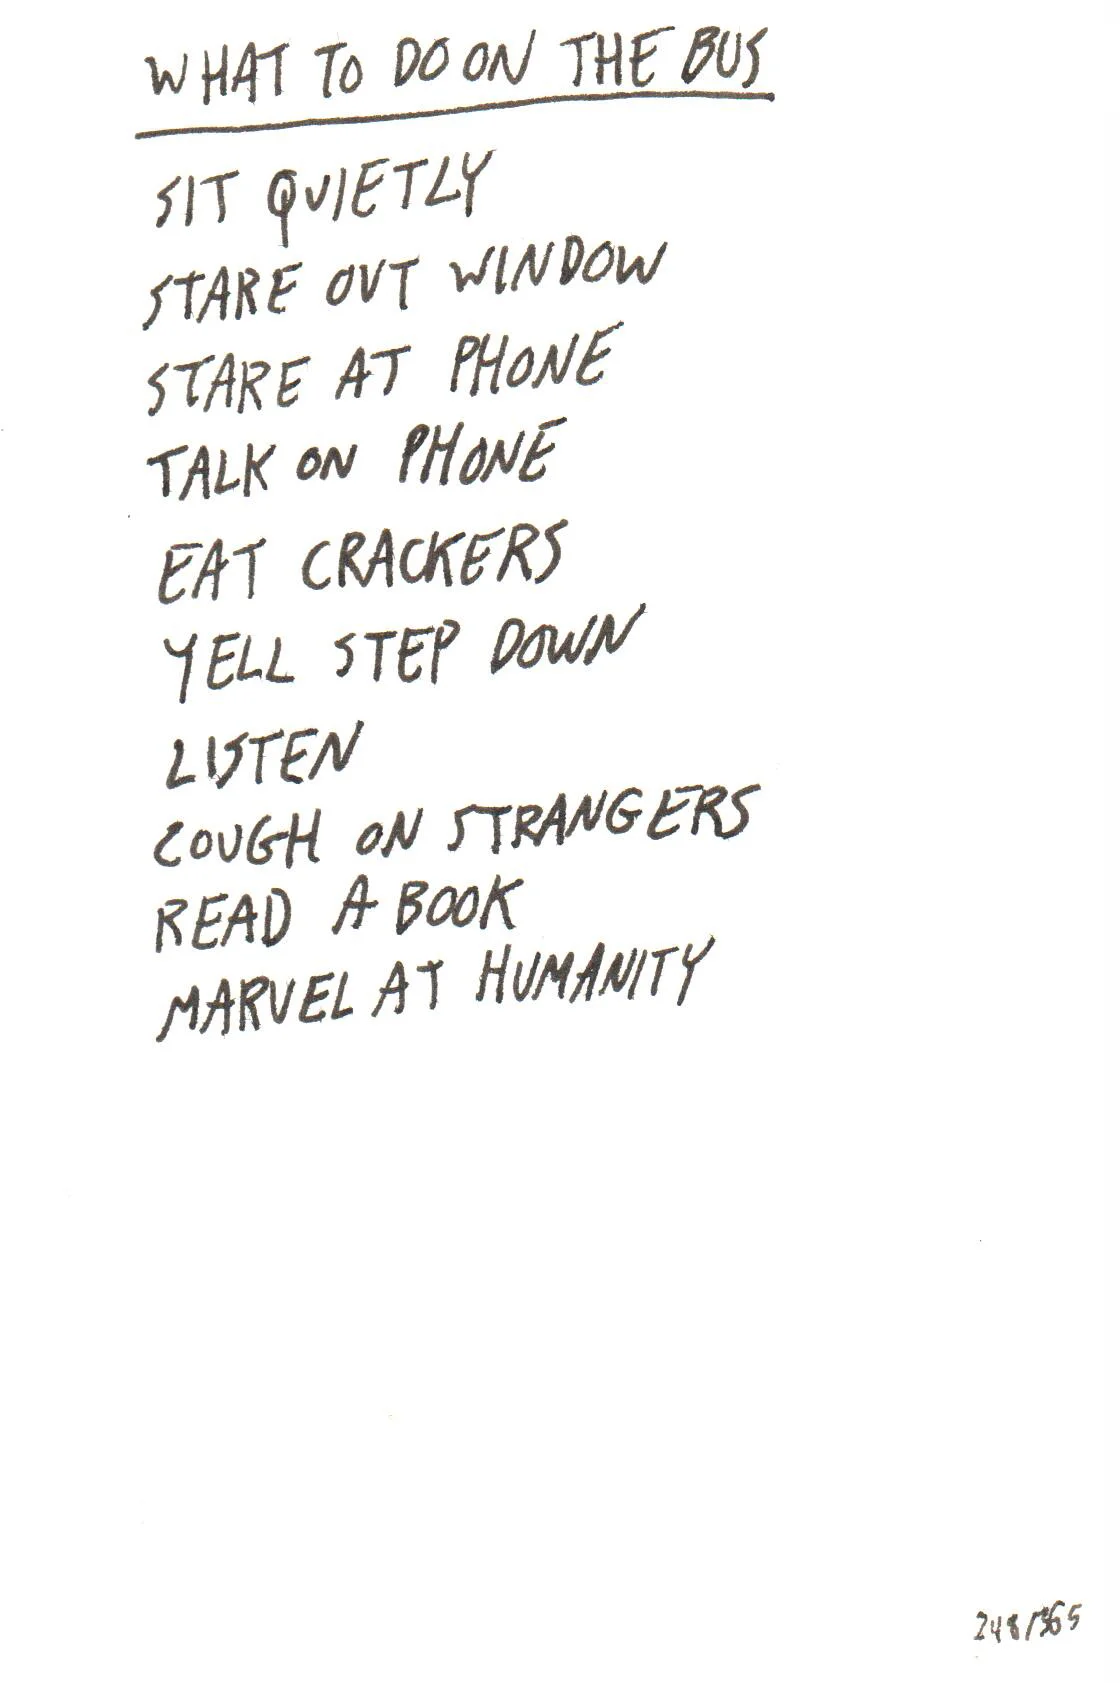 WHAT TO DO ON THE BUS
SIT QUIETLY
STARE OUT WINDOW
STARE AT PHONE
TALK ON PHONE
EAT CRACKERS
YELL STEP DOWN
LISTEN
COUGH ON STRANGERS
READ A BOOK
MARVEL AT HUMANITY
248/365